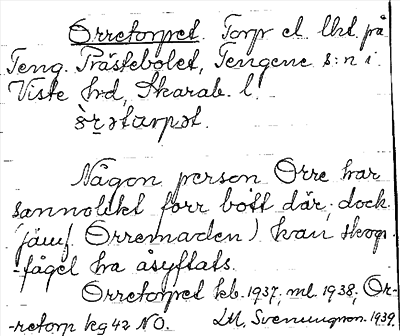 Orretorpet. Torp el. lht. på
Teng. Prästebolet, Tengene s:n i
Viste hrd, Skarab. l.
òrətarpət.
Någon person Orre har
sannolikt förr bott där; dock
(jämf. Orremaden) kan skogs-
-fågel ha åsyftats.
Orretorpet kb. 1937, ml. 1938, Or-
-retorp kg 42 NO. IM. Svenungson. 1939.